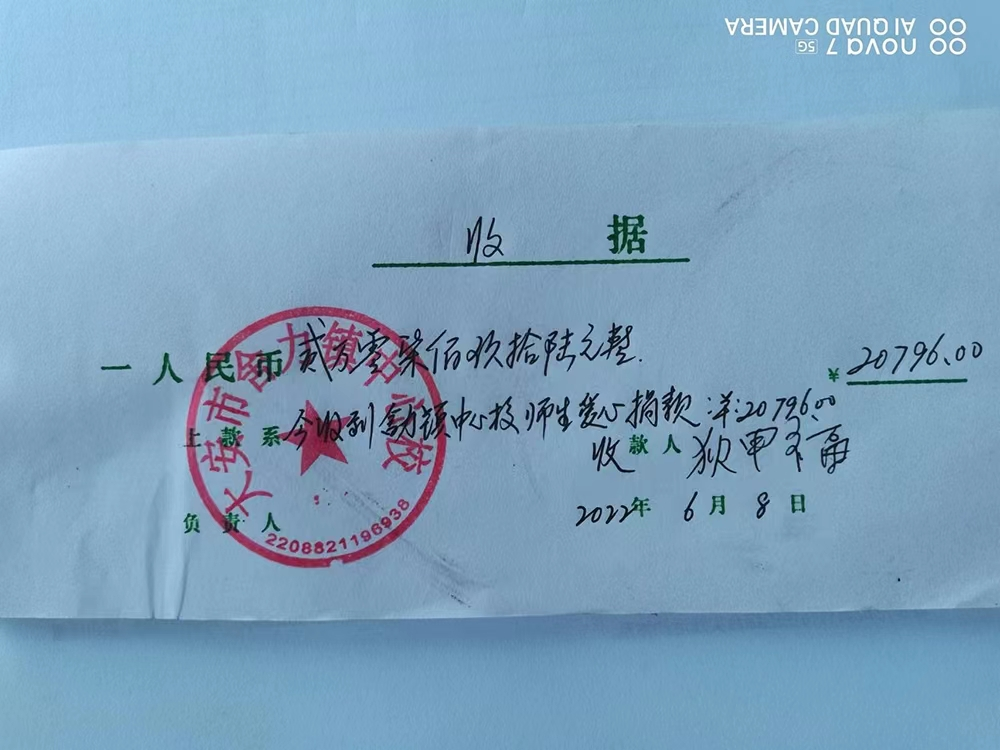 收 据
一人民币 贰万零柒佰玖拾陆元整. ¥ 20796.00
上款系 今收到 镇中心校师生爱心捐款:洋:20796.00
收款人
负责人 2022年 6月 8日
大安市 力镇中心校
2208821196938
nova 7 5G
AI QUAD CAMERA